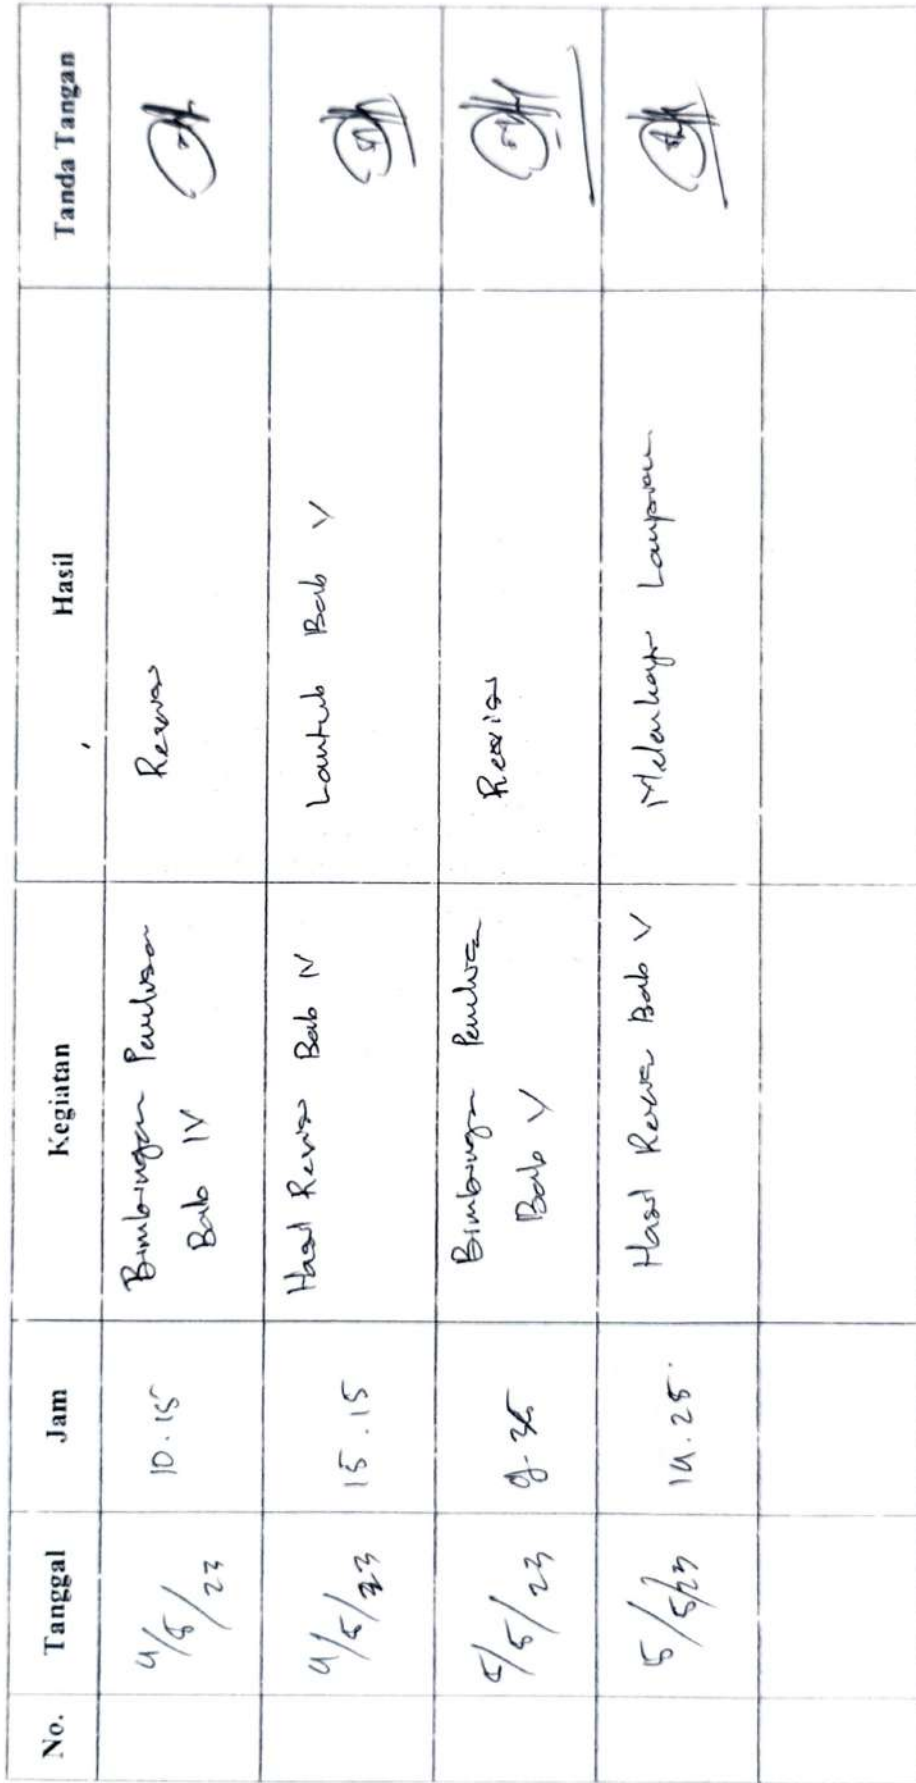 No. Tanggal Jam Kegiatan Hasil Tanda Tangan
4/5/23 10.15 Bimbingan Penulisan Revisi
Bab IV
4/5/23 15.15 Hasil Revisi Bab IV Lanjut Bab V
5/5/23 Bimbingan Penulisan Revisi
Bab V
5/5/23 14.25 Hasil Revisi Bab V Melengkapi Lampiran